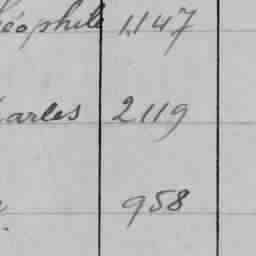 éophile 1.147
arles 2119
958